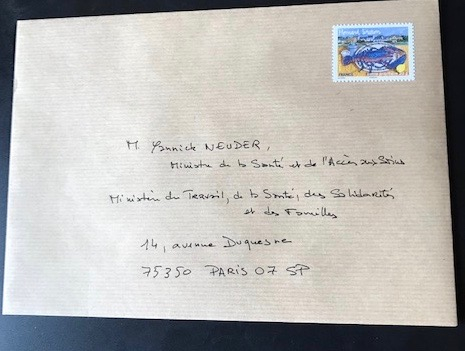 FRANCE
M. Yannick NEUDER,
Ministre de la Santé et de l'Accès aux Soins
Ministère du Travail, de la Santé, des Solidarités
et des Familles
14, avenue Duquesne
75350 PARIS 07 SP